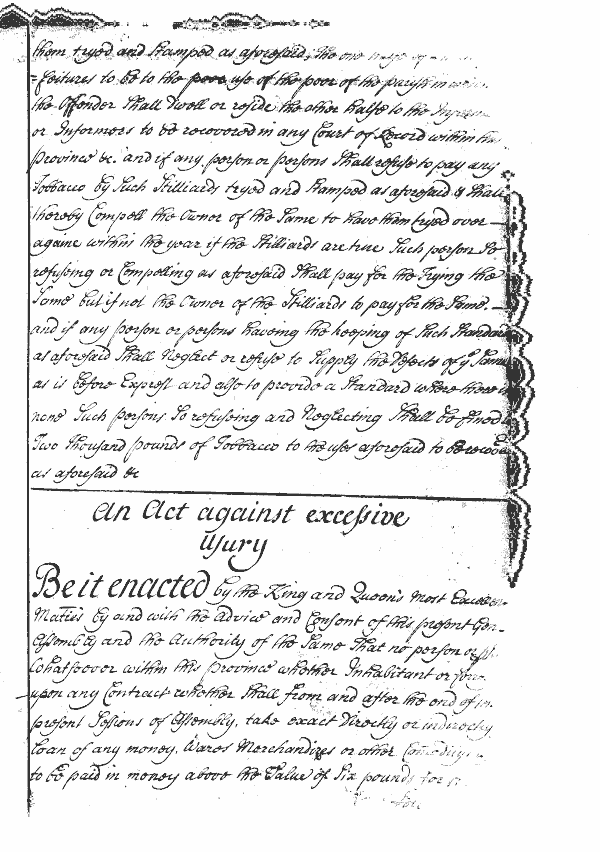 them tryed and Stamped as aforesaid, the one
=feitures to be to the poore use of the poor of the parish
the Offender Shall Dwell or reside the other halfe to the
or Informers to be recovered in any Court of Record within
Province &c. and if any person or persons Shall refuse to pay any
Tobbacco by Such Stilliards tryed and Stamped as aforesaid & Shall
thereby Compell the Owner of the Same to have them tryed over
againe within the year if the Stilliards are true Such person So
refusing or Compelling as aforesaid Shall pay for the Trying the
Same but if not the Owner of the Stilliards to pay for the Same.
and if any person or persons haveing the keeping of Such Standard
as aforesaid Shall Neglect or refuse to Supply the Defects of ye Same
as is before Exprest and also to provide a Standard where there
none Such persons So refusing and Neglecting Shall be fined
Two thousand pounds of Tobbacco to the use aforesaid to be
as aforesaid &c
An Act against excessive
Usury
Be it enacted by the King and Queen's most
Maties by and with the Advice and Consent of this present Gen-
Assembly and the Authority of the Same That no person or
Whatsoever within this Province whether Inhabitant or
upon any Contract whether Shall from and after the end of
present Sessions of Assembly, take exact Directly or indirectly
loan of any money, Wares Merchandizes or other
to be paid in money above the Value of Six pounds for